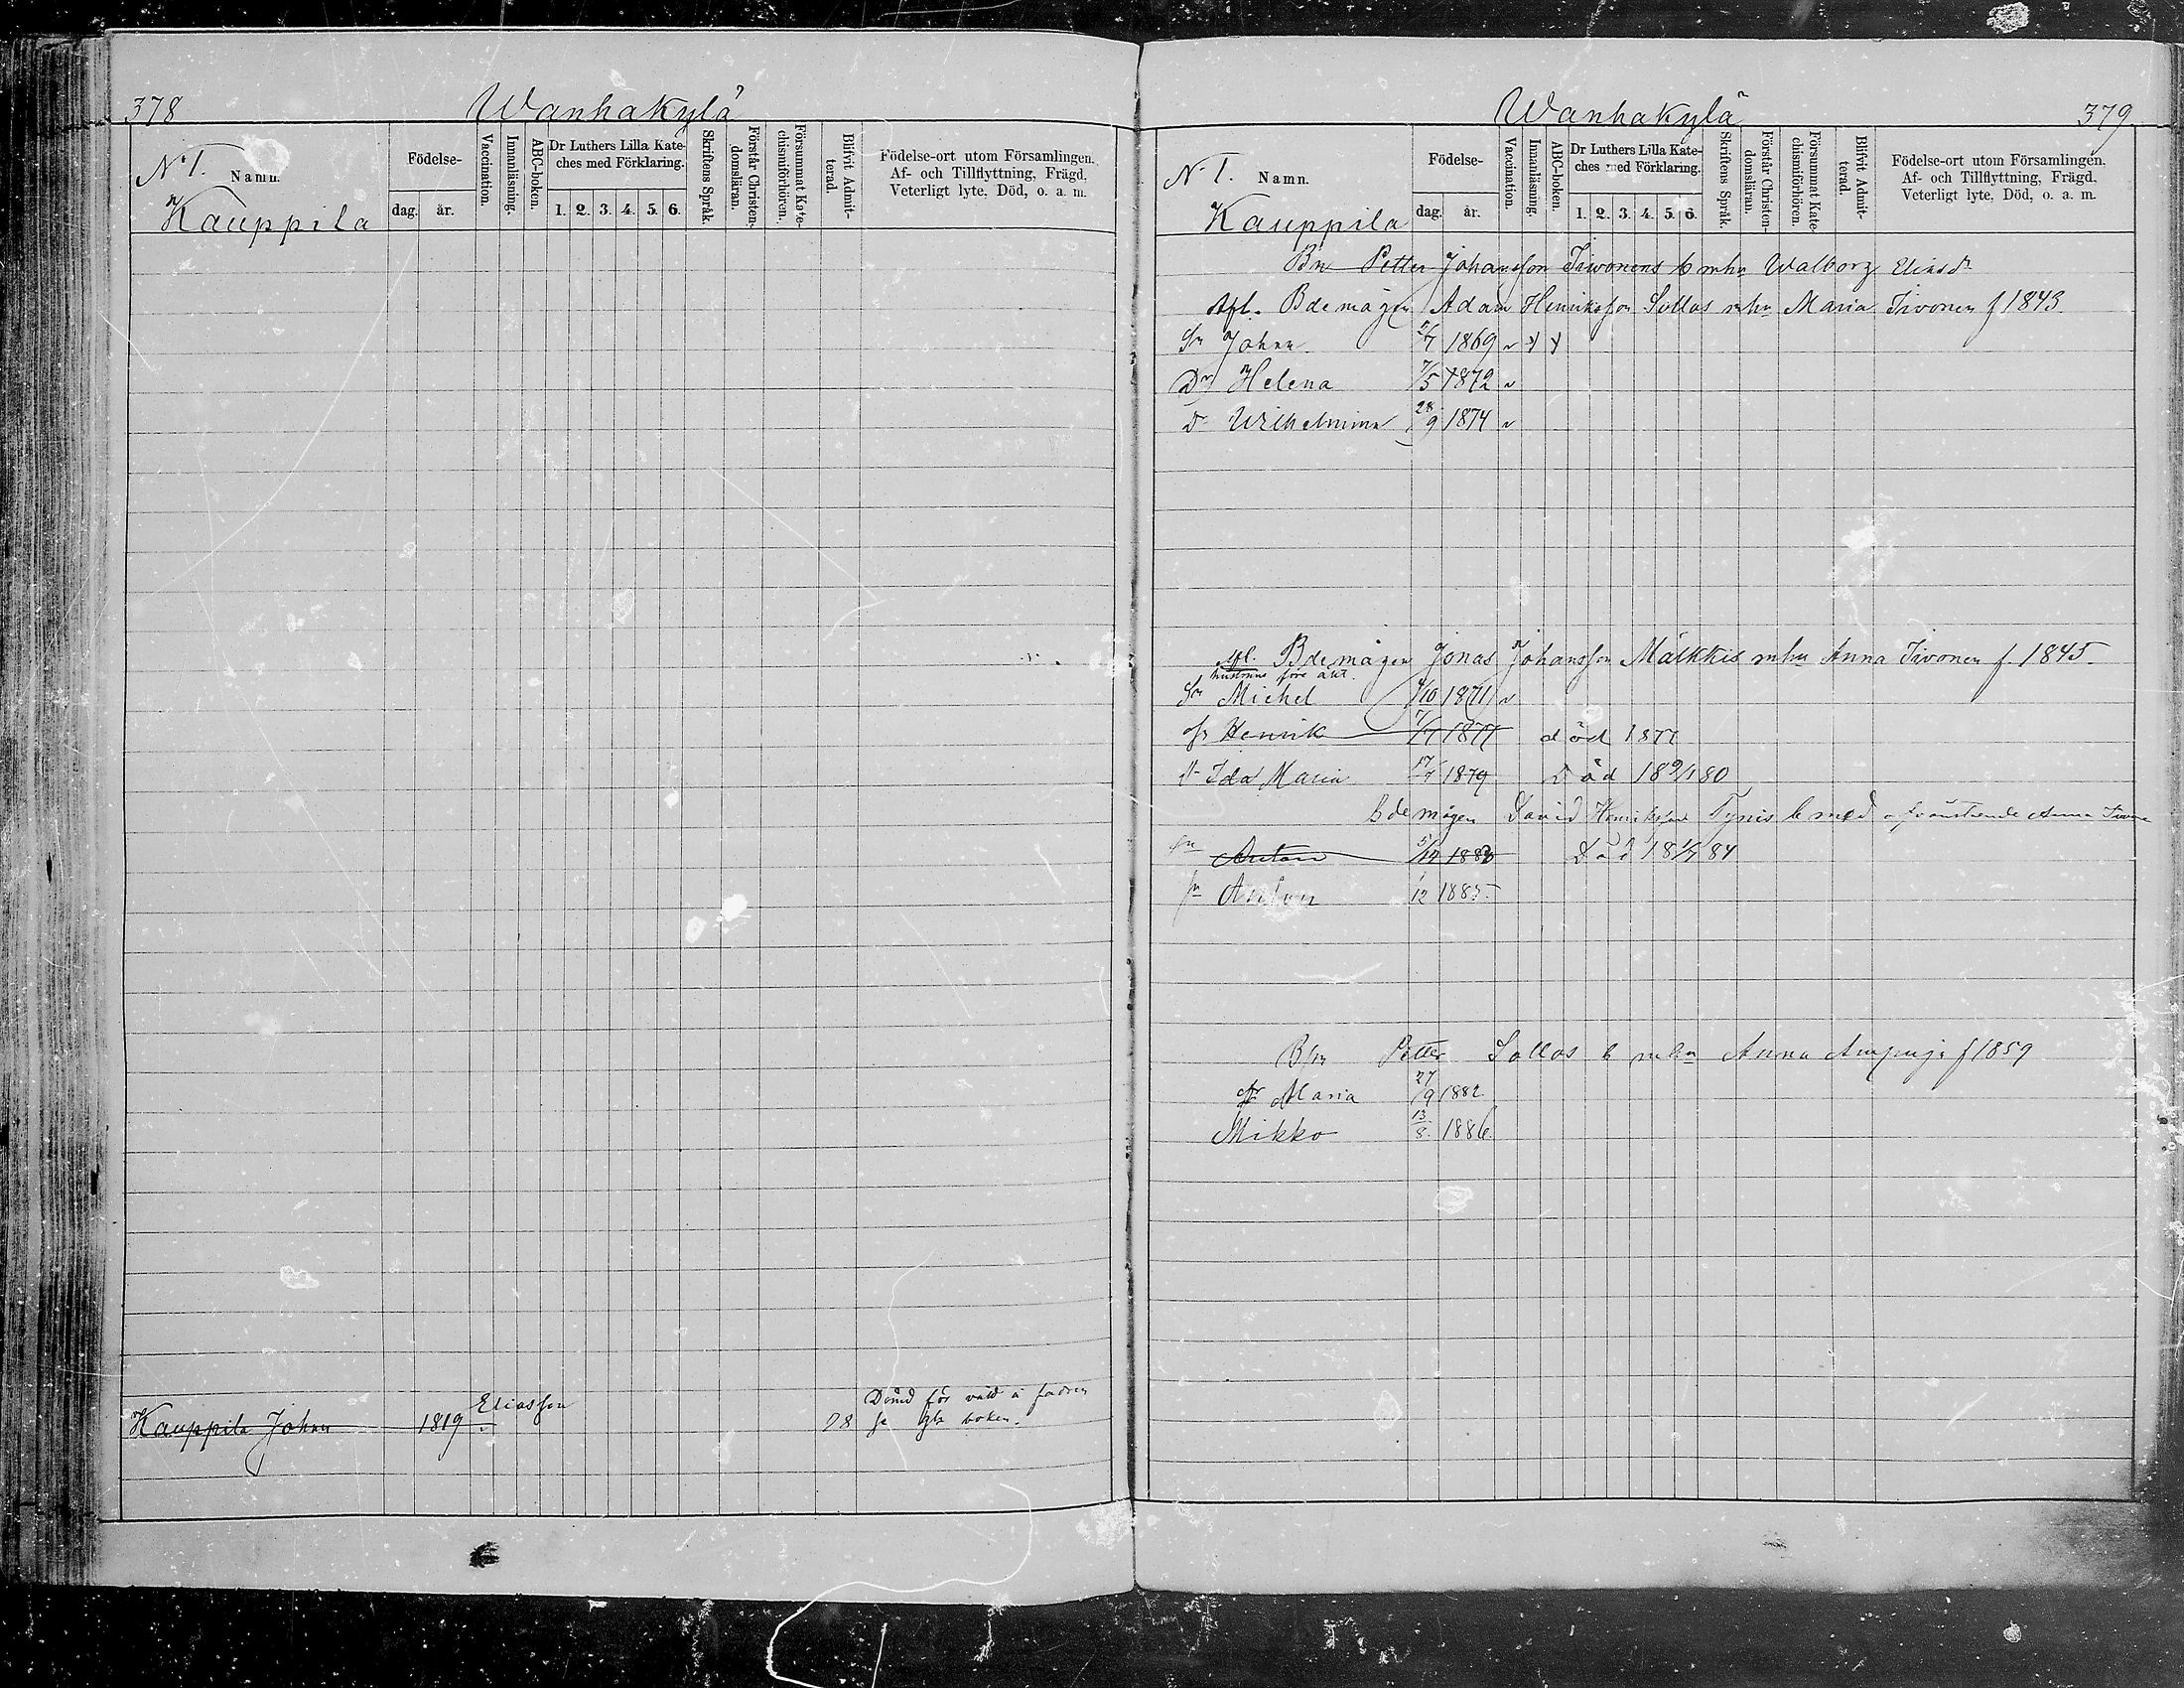 378 Wanhakylä
N. 1. Namn.
Kauppila
Födelse-
dag. år.
Vaccination.
Innanläsning.
ABC-boken.
Dr Luthers Lilla Kate-
ches med Förklaring.
1. 2. 3. 4. 5. 6.
Skriftens Språk.
Förstår Christen-
domsläran.
Försummat Kate-
chismiförhören.
Blifvit Admit-
terad.
Födelse-ort utom Församlingen.
Af- och Tillflyttning, Frägd.
Veterligt lyte, Död, o. a. m.
Eliasson
Dömd för våld å fadren
Kauppila Johan 1819 78 se boken.
Wanhakylä 379
N. 1. Namn.
Kauppila
Födelse-
dag. år.
Vaccination.
Innanläsning.
ABC-boken.
Dr Luthers Lilla Kate-
ches med Förklaring.
1. 2. 3. 4. 5. 6.
Skriftens Språk.
Förstår Christen-
domsläran.
Försummat Kate-
chismiförhören.
Blifvit Admit-
terad.
Födelse-ort utom Församlingen.
Af- och Tillflyttning, Frägd.
Veterligt lyte, Död, o. a. m.
Bn Petter Johansson Tiwonens b mhu Walborg Eliasdr
Afl. Bdemågen Adam Henriksson Sollas mhu Maria Tivonen f 1843
Sn Johan 1869
Dr Helena 7/5 1872
Dr Wilhelmina 28/9 1874
Afl. Bdemågen Jonas Johansson Mälkkis mhu Anna Tivonen f. 1845
hustruns före äkt.
Sn Michel 4/10 1871
Sn Henrik 1877 död 1877
Dr Ida Maria 17/7 1879 Död 18 9/1 80
Bdemågen David Henriksson Tynis b med ofvanstående Anna
Sn Anton Död 84
Sn Anton 12 1885
Petter Sollas b mhu Anna f 1859
Dr Maria 27/9 1882
Mikko 13/8. 1886.